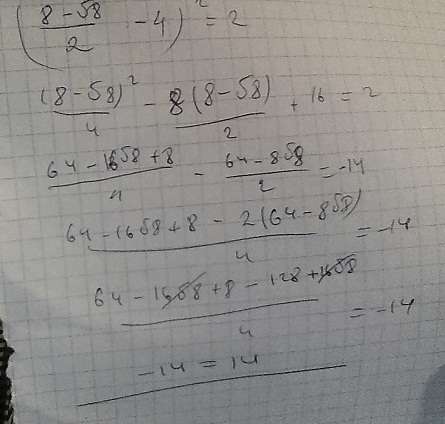 ((8-√8)/2 - 4)² = 2
(8-√8)²/4 - 8(8-√8)/2 + 16 = 2
(64-16√8+8)/4 - (64-8√8)/2 = -14
(64-16√8+8-2(64-8√8))/4 = -14
(64-16√8+8-128+16√8)/4 = -14
-14 = 14